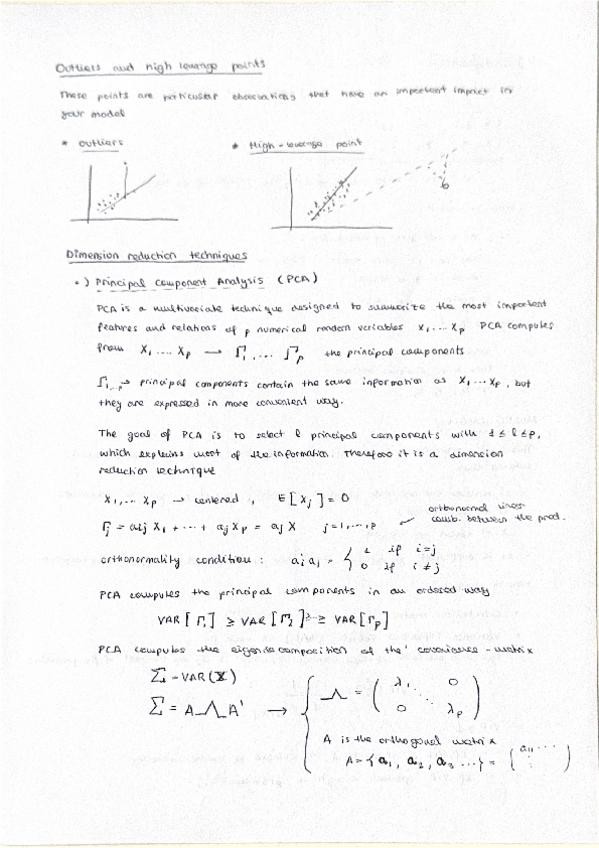 Outliers and high leverage points
These points are particular observations that have an important impact in
your model
* Outliers * High-leverage point
Dimension reduction techniques
•) Principal Component Analysis (PCA)
PCA is a multivariate technique designed to summarize the most important
features and relations of p numerical random variables X₁,... Xp PCA computes
from X₁,... Xp → Γ₁,... Γp the principal components
Γ₁,..p → principal components contain the same information as X₁...Xp, but
they are expressed in more convenient way.
The goal of PCA is to select l principal components with 1 ≤ l ≤ p,
which explains most of the information. Therefore it is a dimension
reduction technique
X₁,... Xp → centered, E[Xj] = 0
orthonormal linear
comb. between the pred.
Γj = a₁j X₁ + ... + aj Xp = aj X j=1,...,p
orthonormality condition: ai aj = { 1 if i=j
0 if i ≠ j
PCA computes the principal components in an ordered way
VAR[Γ₁] ≥ VAR[Γ₂] ≥...≥ VAR[Γp]
PCA computes the eigendecomposition of the covariance-matrix
Σ = VAR(X)
Σ = A Λ A' → { Λ = ( λ₁ ... 0
0 λp )
A is the orthogonal matrix
A = {a₁, a₂, a₃ ...} = ( a₁₁ ...